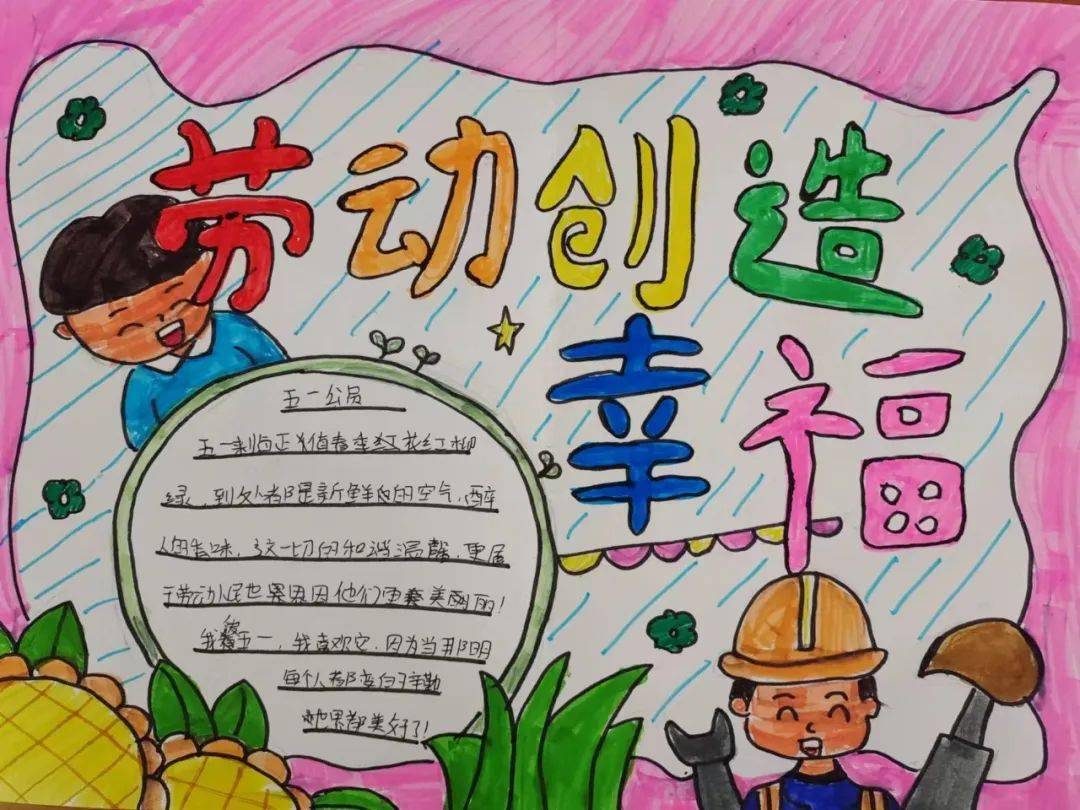 劳动创造
幸福
五一公员
五一来临正值春季红花红柳
绿，到处都是新鲜的空气，醉
人的香味，这一切的和谐温馨，更属
于劳动人民世界因因他们更美丽！
我五一，我喜欢它，因为当那
每个人都变的辛勤
世界都美好了！